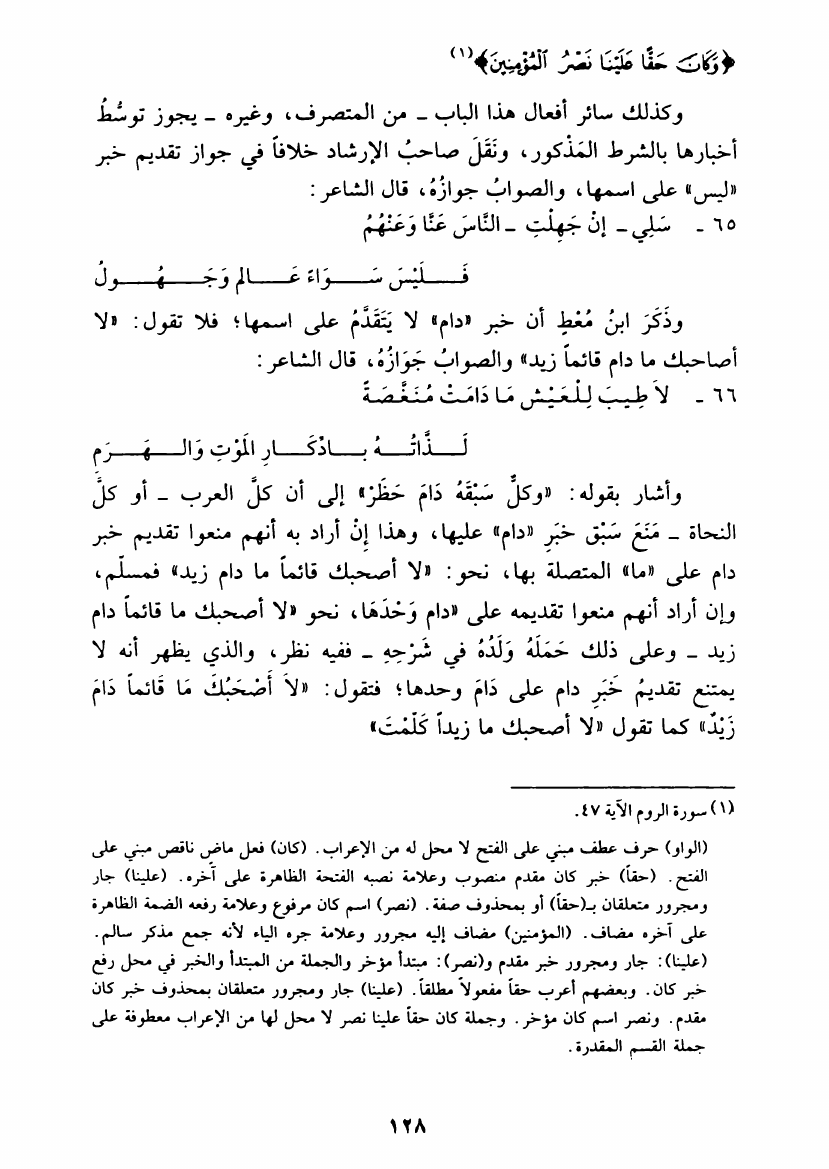 ﴿وَكَانَ حَقًّا عَلَيْنَا نَصْرُ الْمُؤْمِنِينَ﴾(١)
وكذلك سائر أفعال هذا الباب ـ من المتصرف، وغيره ـ يجوز توسُّطُ
أخبارها بالشرط المَذْكور، ونَقَلَ صاحبُ الإرشاد خلافاً في جواز تقديم خبر
«ليس» على اسمها، والصوابُ جوازُهُ، قال الشاعر:
٦٥ ـ سَلِي ـ إنْ جَهِلْتِ ـ النَّاسَ عَنَّا وَعَنْهُمُ
فَلَيْسَ سَوَاءً عَالِمٌ وَجَهُولُ
وذَكَرَ ابنُ مُعْطٍ أن خبر «دام» لا يَتَقَدَّمُ على اسمها؛ فلا تقول: «لا
أصاحبك ما دام قائماً زيد» والصوابُ جَوَازُهُ، قال الشاعر:
٦٦ ـ لاَ طِيبَ لِلْعَيْشِ مَا دَامَتْ مُنَغَّصَةً
لَذَّاتُهُ بِادِّكَارِ المَوْتِ وَالهَرَمِ
وأشار بقوله: «وكلٌّ سَبْقَهُ دَامَ حَظَرْ» إلى أن كلَّ العرب ـ أو كلَّ
النحاة ـ مَنَعَ سَبْق خبَرِ «دام» عليها، وهذا إنْ أراد به أنهم منعوا تقديم خبر
دام على «ما» المتصلة بها، نحو: «لا أصحبك قائماً ما دام زيد» فمسلّم،
وإن أراد أنهم منعوا تقديمه على «دام وَحْدَهَا، نحو «لا أصحبك ما قائماً دام
زيد ـ وعلى ذلك حَمَلَهُ وَلَدُهُ في شَرْحِهِ ـ ففيه نظر، والذي يظهر أنه لا
يمتنع تقديمُ خَبَرِ دام على دَامَ وحدها؛ فتقول: «لاَ أَصْحَبُكَ مَا قَائماً دَامَ
زَيْدٌ» كما تقول «لا أصحبك ما زيداً كَلَّمْتَ»
(١) سورة الروم الآية ٤٧.
(الواو) حرف عطف مبني على الفتح لا محل له من الإعراب. (كان) فعل ماض ناقص مبني على
الفتح. (حقاً) خبر كان مقدم منصوب وعلامة نصبه الفتحة الظاهرة على آخره. (علينا) جار
ومجرور متعلقان بـ(حقاً) أو بمحذوف صفة. (نصر) اسم كان مرفوع وعلامة رفعه الضمة الظاهرة
على آخره مضاف. (المؤمنين) مضاف إليه مجرور وعلامة جره الياء لأنه جمع مذكر سالم.
(علينا): جار ومجرور خبر مقدم و(نصر): مبتدأ مؤخر والجملة من المبتدأ والخبر في محل رفع
خبر كان. وبعضهم أعرب حقاً مفعولاً مطلقاً. (علينا) جار ومجرور متعلقان بمحذوف خبر كان
مقدم. ونصر اسم كان مؤخر. وجملة كان حقاً علينا نصر لا محل لها من الإعراب معطوفة على
جملة القسم المقدرة.
١٢٨